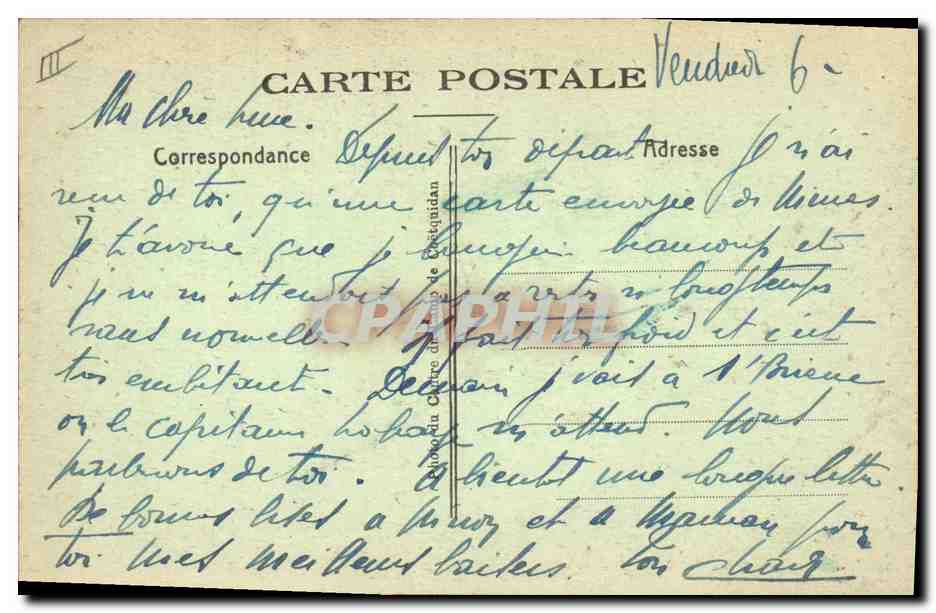 III
CARTE POSTALE Vendredi 6 -
Ma chère
Correspondance Adresse
Depuis ton départ Je n'ai
reçu de toi, qu'une carte envoyée de Nîmes.
Je t'avoue que je beaucoup et
je ne m'attendais pas à rester si longtemps
sans nouvelles Il fait très froid et c'est
très embêtant - Demain je vais à
où le capitaine m'attend. Nous
parlerons de toi. A bientôt une longue lettre
De bonnes bises à et à Maman pour
toi mes meilleurs baisers. Ton
Photo du Centre du Camp de Coëtquidan
CPAPHIL